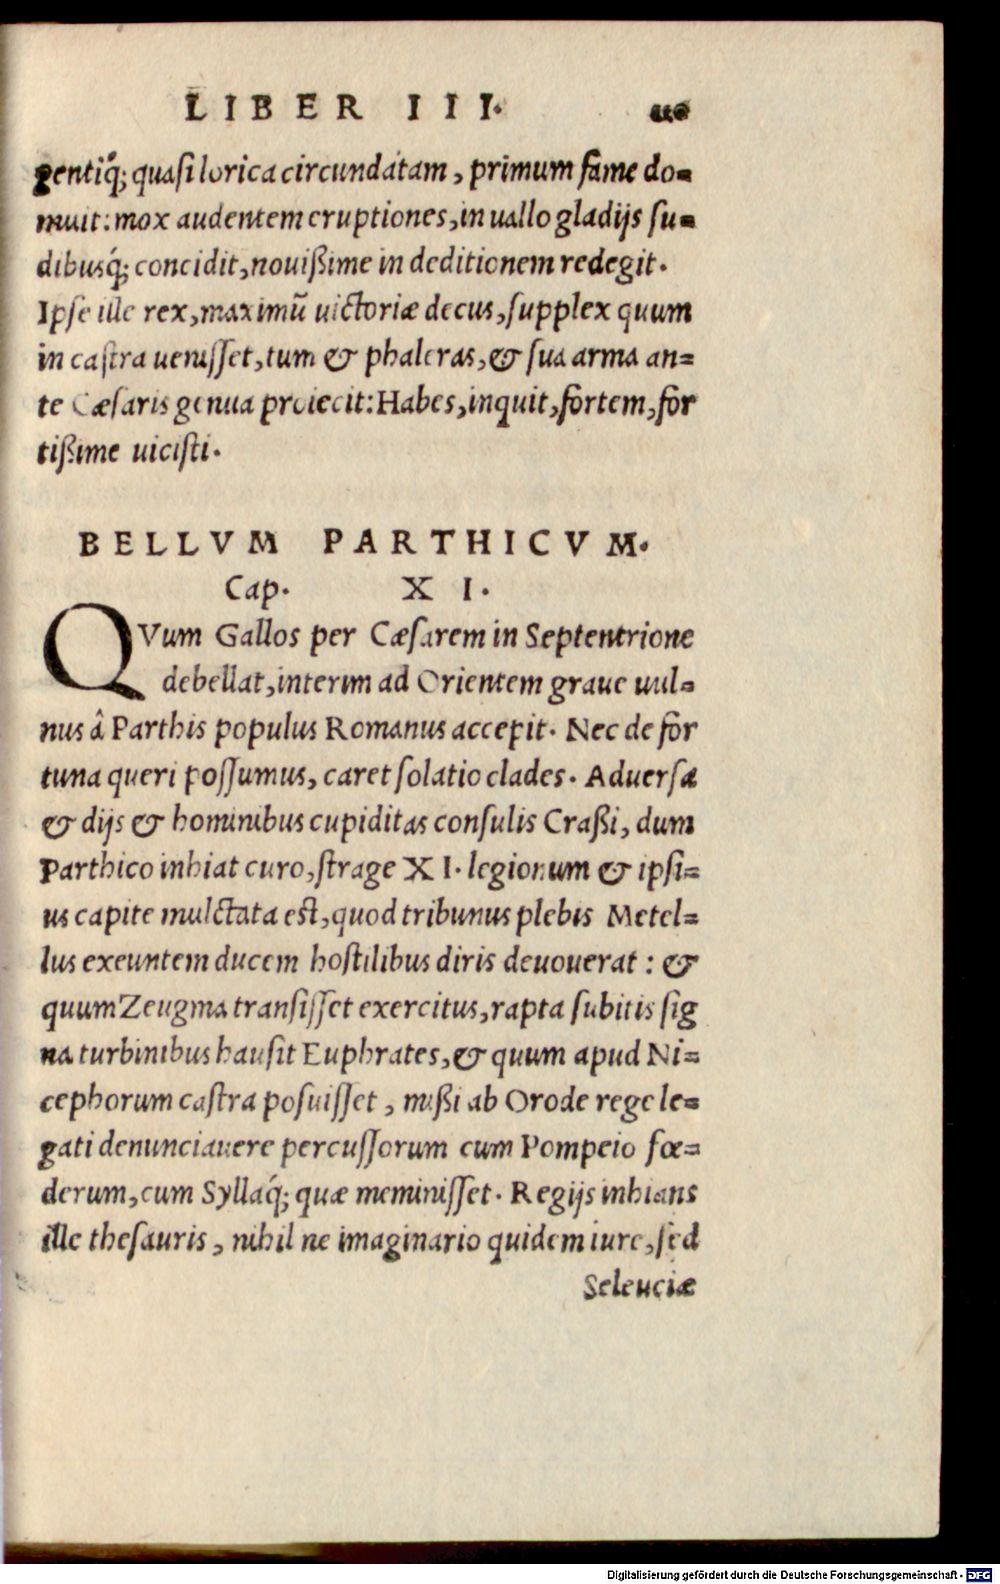 LIBER III.
gentiq́; quasi lorica circundatam, primum fame do-
muit: mox audentem eruptiones, in uallo gladijs su-
dibusq́; concidit, nouißime in deditionem redegit.
Ipse ille rex, maximū uictoriæ decus, supplex quum
in castra uenisset, tum & phaleras, & sua arma an-
te Cæsaris genua proiecit: Habes, inquit, fortem, for
tißime uicisti.
BELLVM PARTHICVM.
Cap. XI.
QVum Gallos per Cæsarem in Septentrione
debellat, interim ad Orientem graue uul-
nus â Parthis populus Romanus accepit. Nec de for
tuna queri possumus, caret solatio clades. Aduersæ
& dijs & hominibus cupiditas consulis Craßi, dum
Parthico inhiat curo, strage XI. legionum & ipsi-
us capite mulctata est, quod tribunus plebis Metel-
lus exeuntem ducem hostilibus diris deuouerat: &
quum Zeugma transisset exercitus, rapta subitis sig
na turbinibus hausit Euphrates, & quum apud Ni-
cephorum castra posuisset, mißi ab Orode rege le-
gati denunciauere percussorum cum Pompeio fœ-
derum, cum Syllaq́; quæ meminisset. Regijs inhians
ille thesauris, nihil ne imaginario quidem iure, sed
Seleuciæ
Digitalisierung gefördert durch die Deutsche Forschungsgemeinschaft - DFG